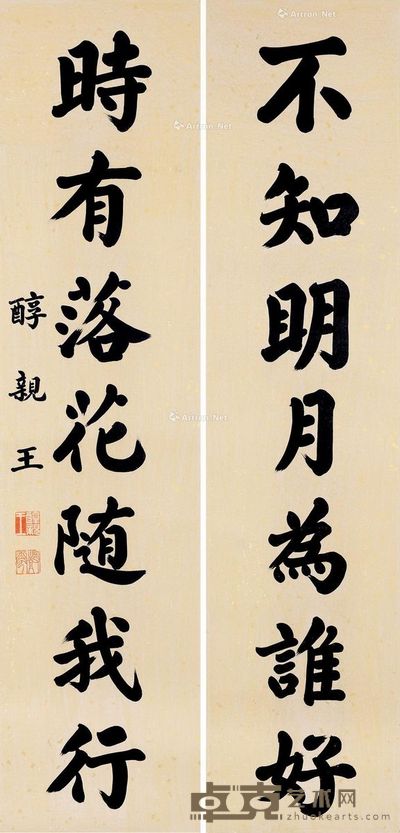 不知明月為誰好
時有落花随我行
醇親王
Artron.Net
Artron.Net
Artron.Net
卓克艺术网
zhuokearts.com